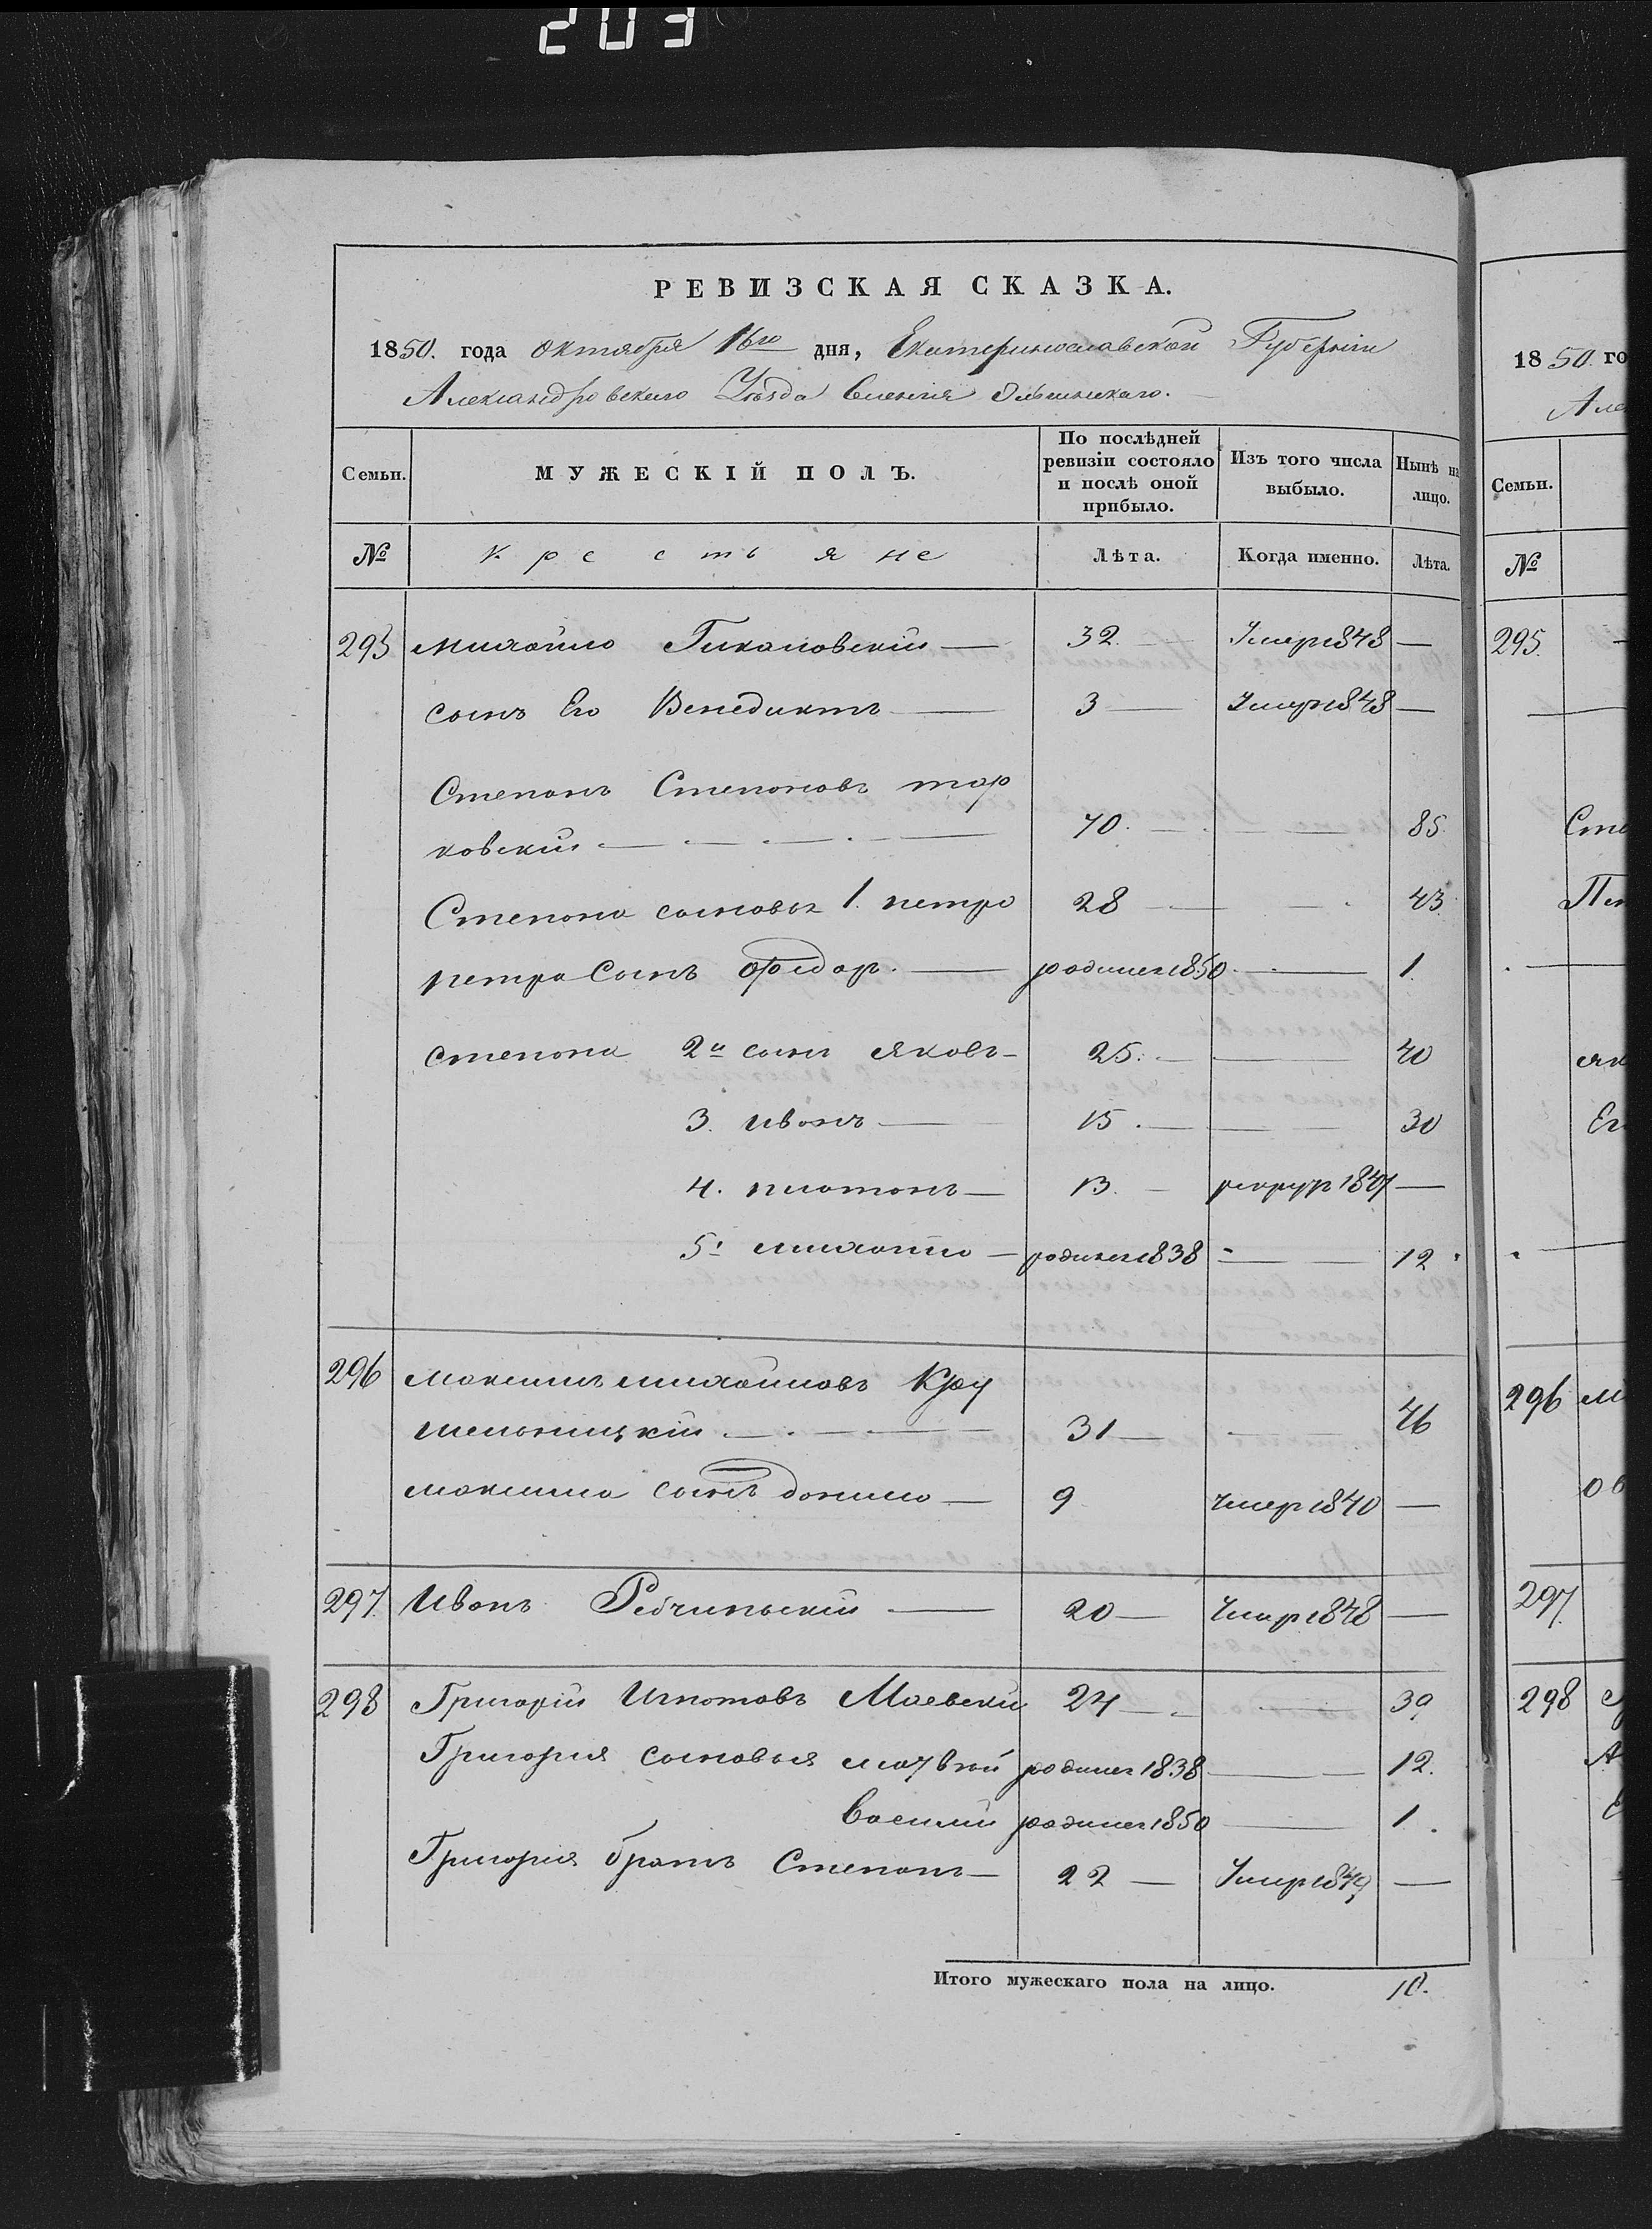 203
РЕВИЗСКАЯ СКАЗКА.
1850. года Октября 16го дня, Екатеринославской Губернiи
Александровскаго Уѣзда Селенiя
Семьи.
МУЖЕСКIЙ ПОЛЪ.
По послѣдней ревизiи состояло и послѣ оной прибыло.
Изъ того числа выбыло.
Нынѣ на лицо.
№
Крестьяне
Лѣта.
Когда именно.
Лѣта.
295 михайло 32 Умер 1848 —
сынъ Его Венедиктъ — 3 — Умер 1848 —
Степанъ Степановъ тар
ковскiй — 70. — 85.
Степана сыновья 1. петро 28 — 43
петра Сынъ Федор. — родился 1850. — 1.
степана 2й сынъ Яковъ — 25. — 40
3. иванъ — 15. — 30
4. платонъ — 13. — рекрут —
5. михайло — родился 1838 — 12.
296 максимъ михайловъ Кру
шельницкiй — 31 — 46
максима сынъ данило — 9 умер 1840 —
297 Иванъ — 20 — Умер 1848 —
298 Григорiй Игнатовъ Маевскiй 24 — 39
Григорiя сыновья матвѣй родился 1838 — 12.
Василiй родился 1850 — 1.
Григорiя братъ Степанъ — 22 — Умер 1849 —
Итого мужескаго пола на лицо. 10.
1850. го
Але
Семьи.
№
295.
Сте
Пе
як
Ег
296 м
297.
298